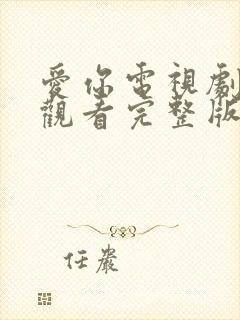 愛你電視劇
觀看完整版
任嚴